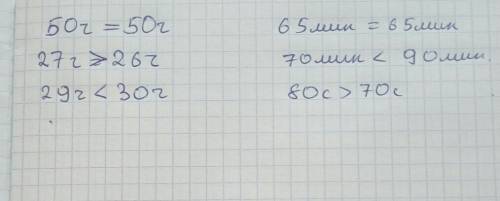 50ч = 50ч
27ч > 26ч
29ч < 30ч
65мин = 65мин
70мин < 90мин.
80с > 70с